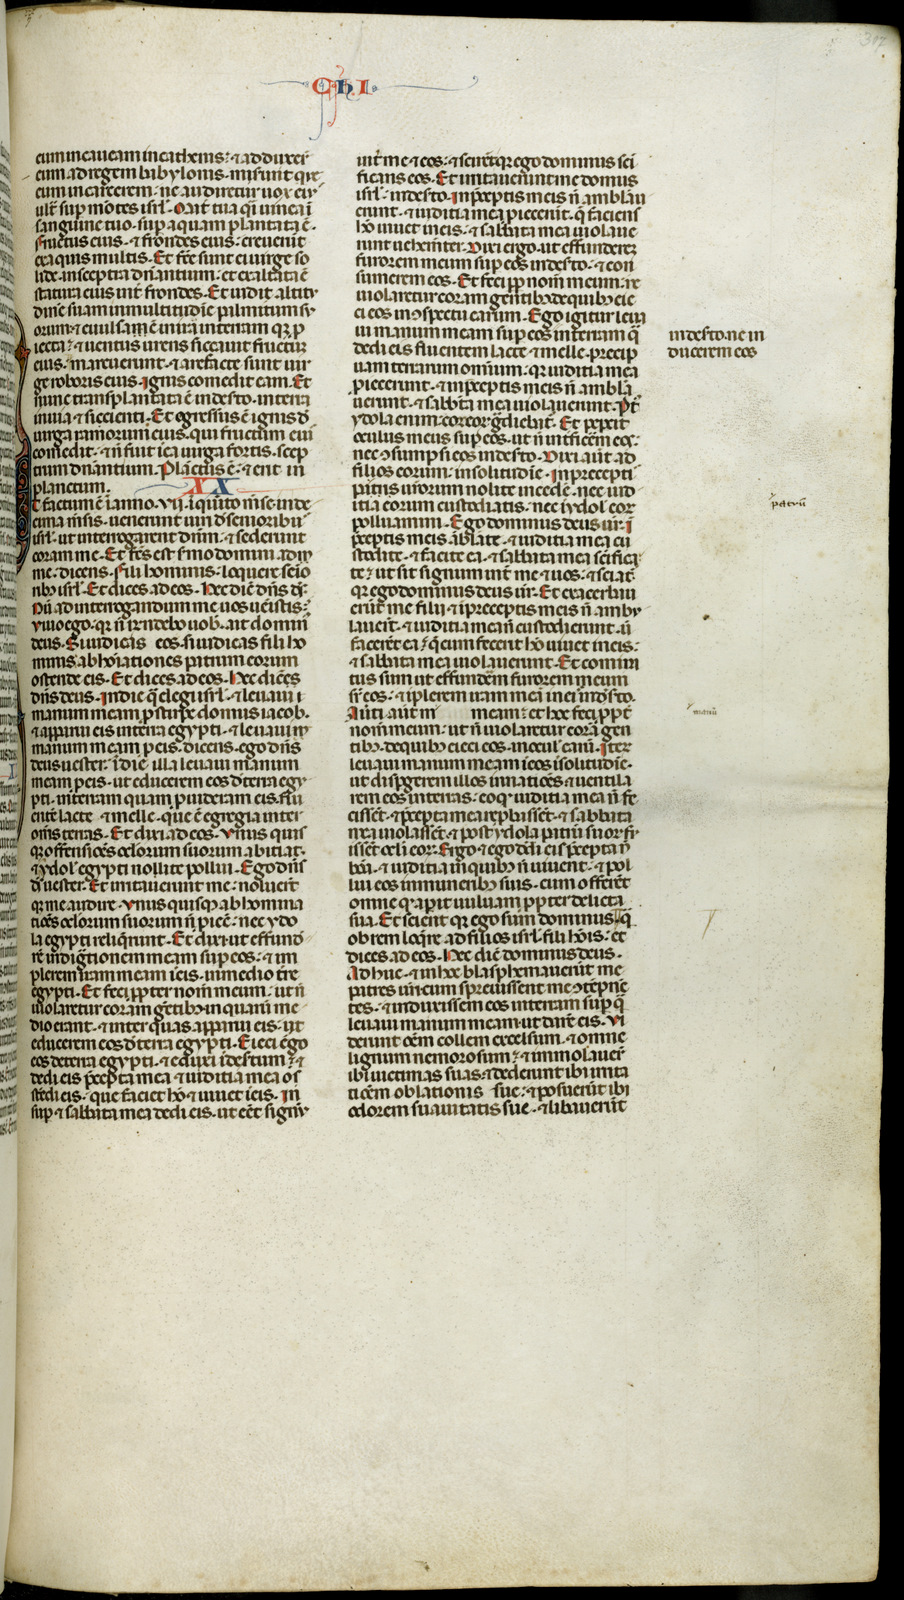 CHI
eum in caueam in cathenis: ⁊ adduxer̄t
eum ad regem babylonis. misūnt q̄ꝫ
eum in carcerem: ne audiretur uox eiꝰ
ult̄ sup mōtes isrl̄. Mat̄ tua q̄i uinea ī
sanguine tuo. sup aquam plantata ē.
fructus eius. ⁊ frondes eius: creuerūt
ex aquis multis. Et fc̄e sunt ei uirge so
lide. in sceptra dn̄antium: et exaltata ē
statura eius int̄ frondes. Et uidit altitu
dinē suam in multitudīe palmitum su
orum ⁊ euulsa est in ira in terram q̨ꝫ p
iecta: ⁊ uentus urens siccauit fructū
eius. marcuerunt ⁊ arefacte sunt uir
ge roboris eius. Ignis comedit eam. Et
nunc transplantata ē in desto. in terra
inuia ⁊ sicienti. Et egressus ē ignis d̄
uirga ramorum eius. qui fructum eiꝰ
comedit: ⁊ n̄ fuit ī ea uirga fortis. scep
trum dn̄antium. Planctus ē: ⁊ erit in
planctum.
XX
Et factum ē ī anno .vii. ī quīto m̄se. in de
cima m̄sis. uenerunt uiri d̄ senioribꝰ
isrl̄. ut interrogarent dn̄m: ⁊ sederunt
coram me. Et fc̄s est s̄mo domini ad
me: dicens. Fili hominis: loquere senio
ribꝰ isrl̄. Et dices ad eos. Hec dic̄ dn̄s ds̄.
Nū ad interrogandum me uos uēistis:
Viuo ego. q̨ n̄ rn̄debo uob̄. ait domin
deus. Si iudicas eos. si iudicas fili ho
minis: abhōiationes patrum eorum
ostende eis. Et dices ad eos. Hec dic̄
dn̄s deus. In die q̄ elegi isrl̄. ⁊ leuaui
manum meam p stirpe domus iacob.
⁊ apparui eis in terra egypti. ⁊ leuaui
manum meam p eis. dicens. ego dn̄s
deus uester: ī die illa leuaui manum
meam p eis. ut educerem eos d̄ terra egy
pti. in terram quam puideram eis. flu
entē lacte ⁊ melle. que ē egregia inter
om̄s terras. Et dixi ad eos. Vnus quis
q̨ꝫ offensiōes oclorum suorum abiciat.
⁊ ydol̄ egypti nolite pollui. Ego dn̄s
ds̄ uester. Et irritauerunt me: noluert̄
q̨ꝫ me audire. Vnus quisqꝫ abhomina
tiōes oclorum suorum n̄ piec̄: nec ydo
la egypti reliq̄runt. Et dixi. ut effund̄
rē indigt̄ionem meam sup eos: ⁊ im
plerem iram meam ī eis. in medio tr̄e
egypti. Et feci ppter nom̄ meum: ut n̄
uiolaretur coram gētibꝰ in quarū me
dio erant. ⁊ inter quas apparui eis: ut
educerem eos d̄ terra egypti. Eieci ergo
eos de terra egypti. ⁊ eduxi ī destum: ⁊
dedi eis p̄cepta mea ⁊ iudicia mea os
tēdi eis: que faciet hō ⁊ uiuet ī eis. In
sup ⁊ sabbata mea dedi eis. ut eēt signū
int̄ me ⁊ eos: ⁊ scirēt q̨ ego dominus sc̄i
ficans eos. Et irritauerunt me domus
isrl̄. in desto. In p̄ceptis meis n̄ ambulau
erunt. ⁊ iudicia mea piecerūt. q̄ faciens
hō uiuet in eis: ⁊ sabbata mea uiolaue
runt uehemter. Dixi ergo. ut effunderē
furorem meum sup eos in desto: ⁊ con
sumerem eos. Et feci pp̄ nom̄ meum: ne
uiolaretur coram gentibꝰ de quibꝰ eie
ci eos in ɔspectu earum. Ego igitur leua
ui manum meam sup eos in terram q̄
dedi eis fluentem lacte ⁊ melle. precip
uam terrarum omnium: q̨ iudicia mea
piecerunt. ⁊ in p̄ceptis meis n̄ ambula
uerunt. ⁊ sabb̄ta mea uiolauerunt. Pt̄
ydola enim. cor eoꝝ ḡdiebat̄. Et pepcit
oculus meus sup eos. ut n̄ int̄ficēm eos:
nec ɔsumpsi eos in desto. Dixi aut̄ ad
filios eorum: in solitudīe. In precepti
patrūs ur̄orum nolite incedē. nec iud
itia eorum custodiatis. nec ī ydol̄ eoꝝ
polluamini. Ego dominus deus ur̄: ī
p̄ceptis meis ābulate. ⁊ iuditia mea cu
stodite. ⁊ facite ea. ⁊ sabbata mea sc̄ifica
te: ut sit signum int̄ me ⁊ uos: ⁊ sciat̄
q̨ ego dominus deus ur̄. Et exacerbau
erūt me filii ⁊ ī preceptis meis n̄ ambu
lauert̄. ⁊ iuditia mea n̄ custodierunt. ut
facerēt ea: q̄ cum fecerit hō uiuet in eis:
⁊ sabbata mea uiolauerunt. Et commi
tus sum ut effundēm furorem meum
sr̄ eos: ⁊ īplerem iram meā in eis ī desto.
Auti aut̄ m meam: et hec feci ppt̄
nom̄ meum: ut n̄ uiolaretur corā gen
tibꝰ. de quibꝰ eieci eos: in ocul̄ earū. Iter̄
leuaui manum meam ī eos ī solitudīe.
ut disp̄gerem illos in natiōes: ⁊ uentila
rem eos in terras. eo q̨ iuditia mea n̄ fe
cissēt. ⁊ p̄cepta mea repbassēt. ⁊ sabbata
mea uiolassēt. ⁊ post ydola patrū suoꝝ fu
issēt ocl̄i eoꝝ. Ergo ⁊ ego dedi eis p̄cepta n̄
bōa. ⁊ iuditia in quibꝰ n̄ uiuent: ⁊ pol
lui eos in muneribꝰ suis. cum offerēt
omne q̨ apit uuluam ppter delicta
sua. Et scient q̨ ego sum dominus. Q̄
ob rem loq̄re ad filios isrl̄. fili hōis: et
dices ad eos. Hec dic̄ dominus deus.
Adhuc. ⁊ in hoc blasphemauerūt me
patres ur̄i cum spreuissent me ɔtēpne
tes. ⁊ induxissem eos in terram sup q̄
leuaui manum meam. ut darē eis. Vi
derunt oēm collem excelsum. ⁊ omne
lignum nemorosum: ⁊ immolauer̄
ibi uictimas suas: ⁊ dederunt ibi irrita
tiōem oblationis sue. ⁊ posuerūt ibi
odorem suauitatis sue. ⁊ libauerūt
in desto. ne in
ducerem eos
patrū
manū